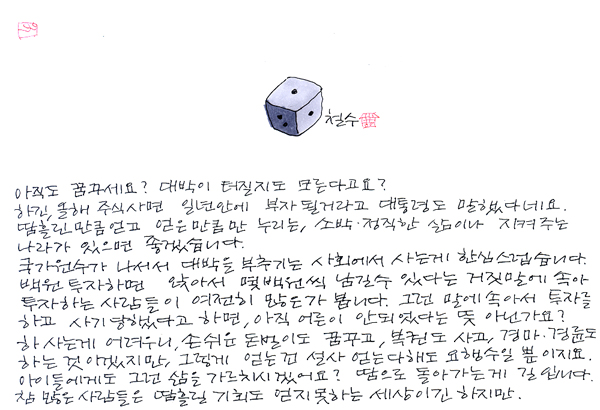 철수
아직도 꿈꾸세요? 대박이 터질지도 모른다고요?
하긴, 올해 주식사면 일년안에 부자 될거라고 대통령도 말했다네요.
땀흘린만큼 얻고 얻은만큼만 누리는, 소박·정직한 삶이나 지켜주는
나라가 있으면 좋겠습니다.
국가원수가 나서서 대박을 부추기는 사회에서 사는게 한심스럽습니다.
백원 투자하면 앉아서 몇백원씩 남길수 있다는 거짓말에 속아
투자하는 사람들이 여전히 많은가 봅니다. 그런 말에 속아서 투자를
하고 사기당했다고 하면, 아직 어른이 안되었다는 뜻 아닌가요?
하 사는게 어려우니, 손쉬운 돈벌이도 꿈꾸고, 복권도 사고, 경마·경륜도
하는 것 아겠지만, 그렇게 얻는건 설사 얻는다해도 요행수일 뿐이지요.
아이들에게도 그런 삶을 가르치시겠어요? 땀으로 돌아가는게 길입니다.
참 많은 사람들은 땀흘릴 기회도 얻지못하는 세상이긴 하지만.